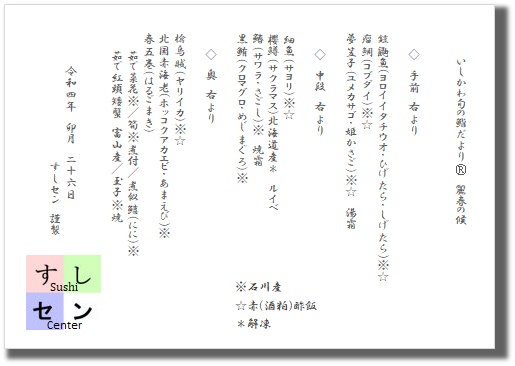 いしかわ旬の鮨だより® 麗春の候
◇ 手前 右より
鎧鼬魚(ヨロイイタチウオ・ひげたら・しげたら)※☆
瘤鯛(コブダイ)※☆
夢笠子(ユメカサゴ・姫かさご)※☆ 湯霜
◇ 中段 右より
細魚(サヨリ)※☆
櫻鱒(サクラマス)北海道産＊ ルイベ
鰆(サワラ・さごし)※ 焼霜
黒鮪(クロマグロ・めじまぐろ)※
◇ 奥 右より
槍烏賊(ヤリイカ)※☆
北国赤海老(ホッコクアカエビ・あまえび)※
春五巻(はるごまき)
茹で菜花※／筍※煮付／煮似鱚(にに)※
茹で紅頭矮蟹 富山産／玉子※焼
令和四年 卯月 二十六日
すしセン 謹製
※石川産
☆赤(酒粕)酢飯
＊解凍
すし
Sushi
セン
Center